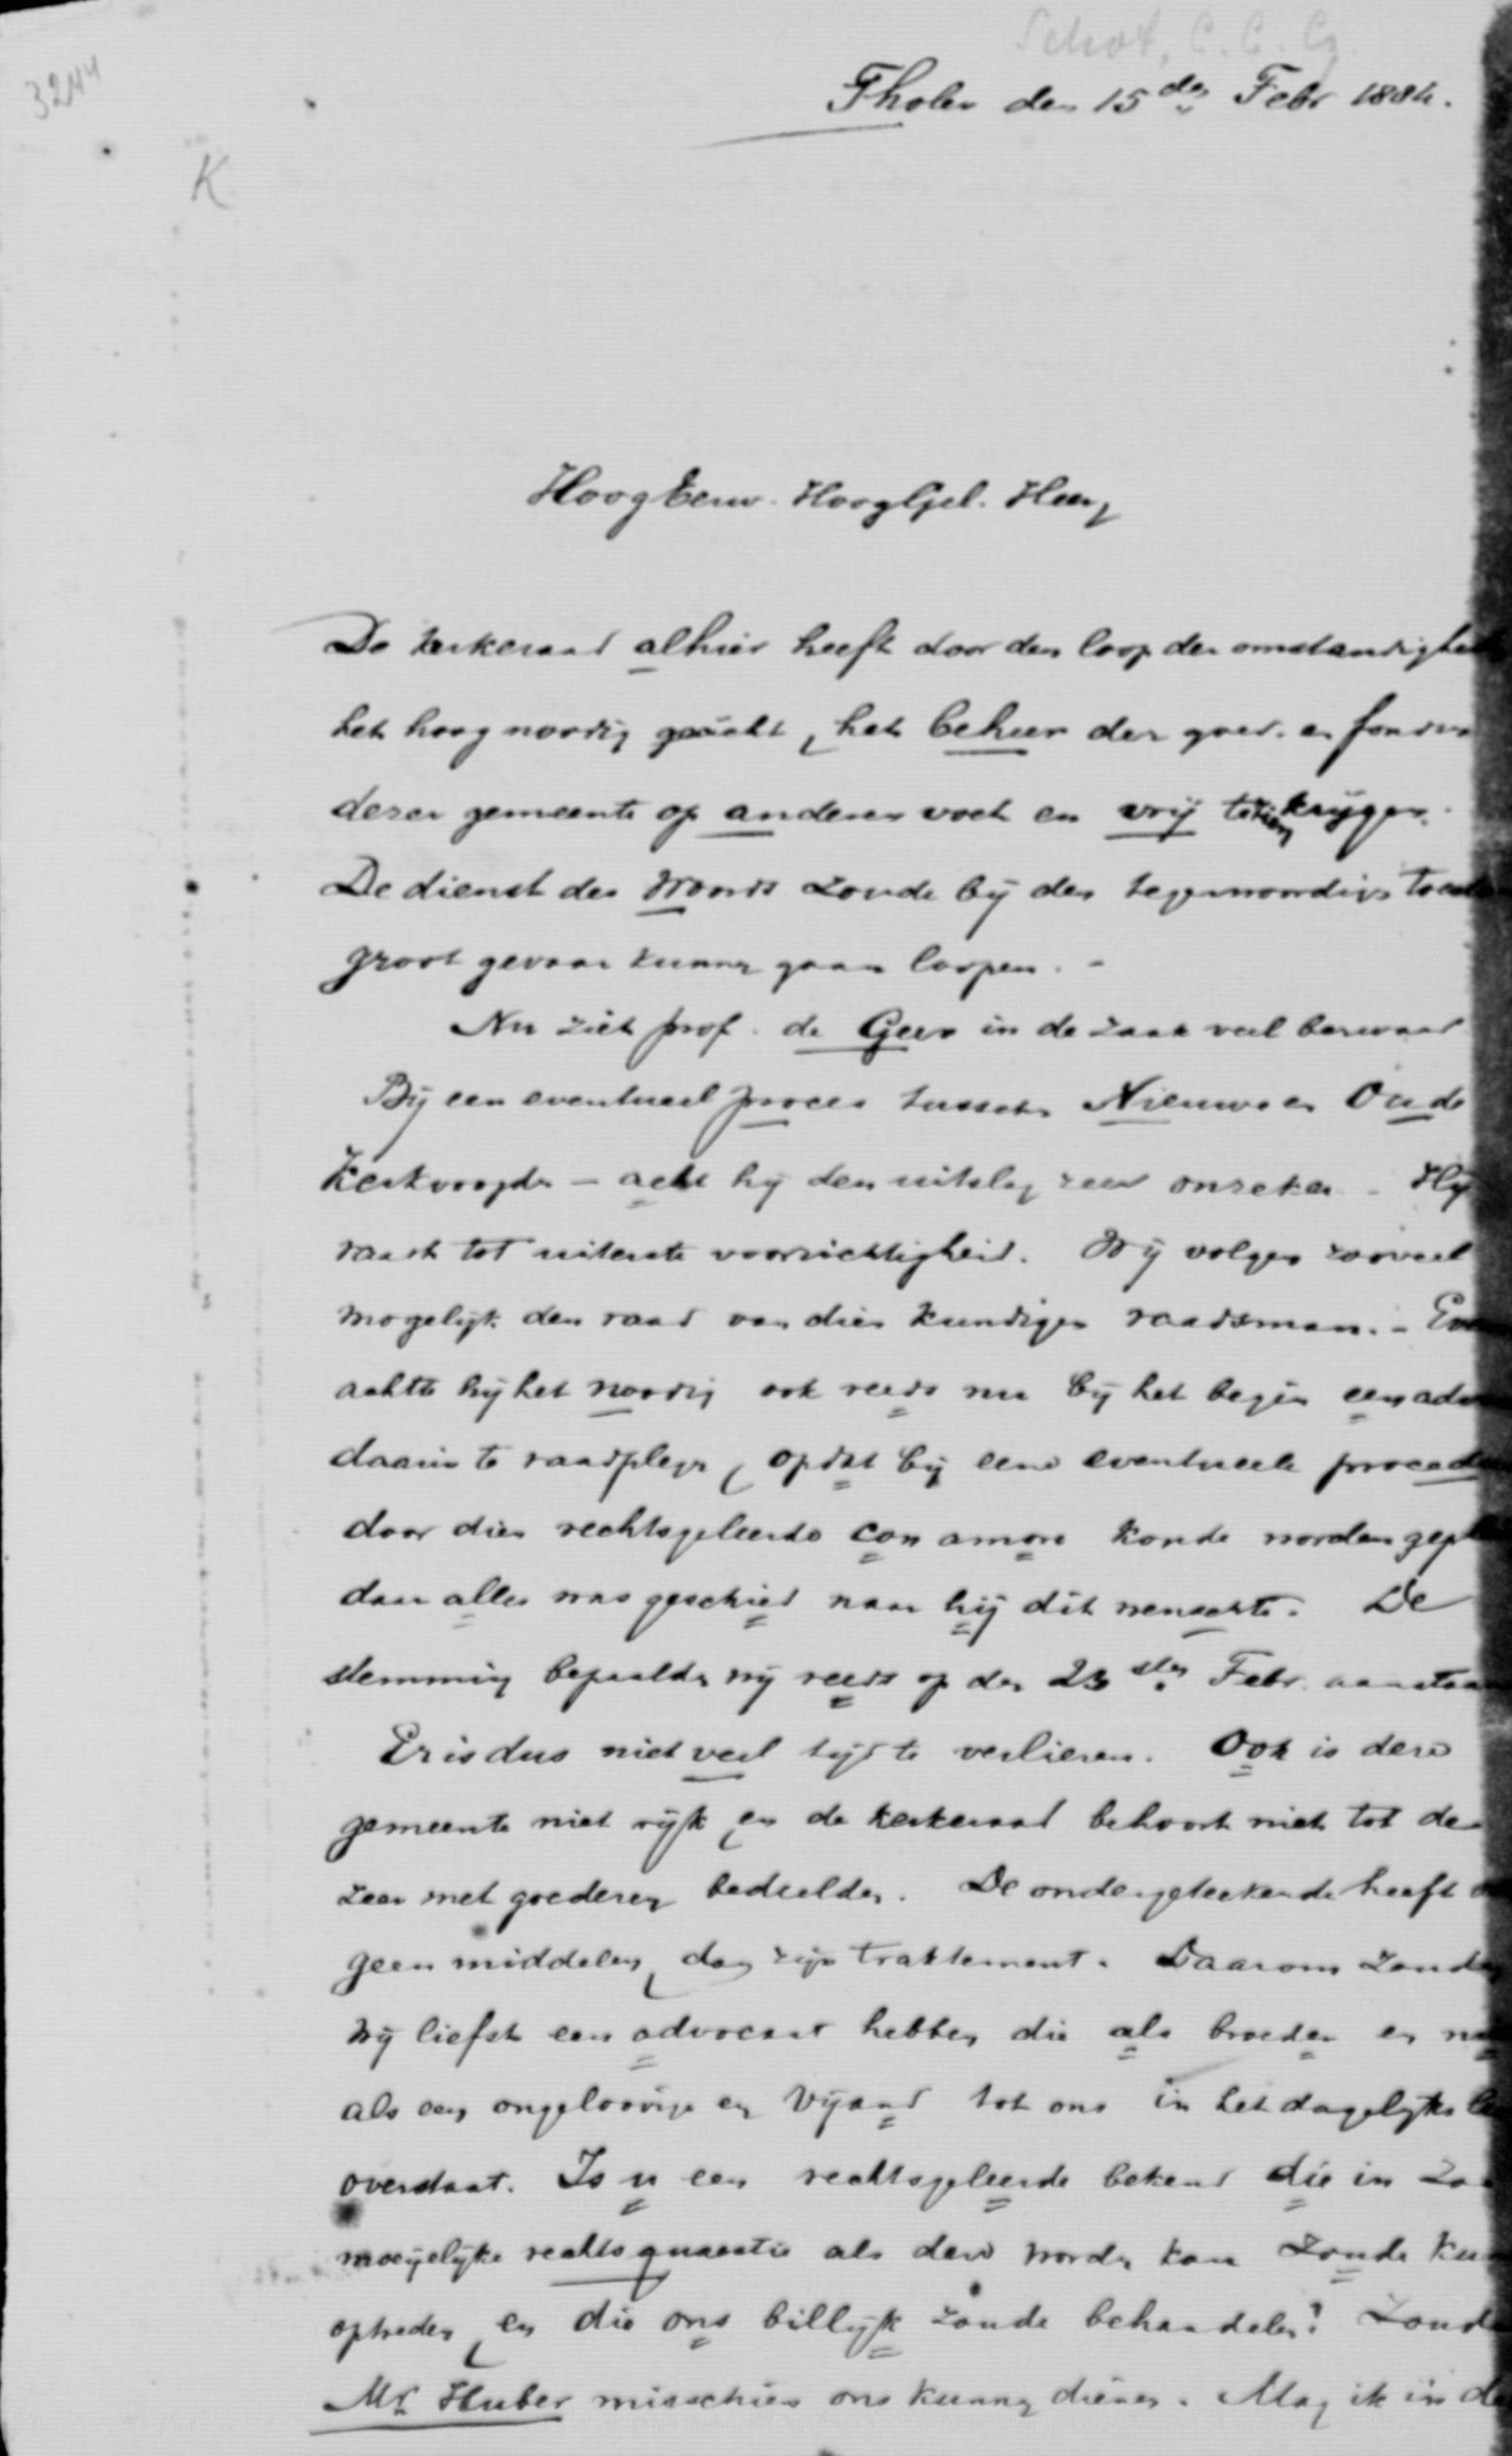 Schot, C. C. Cz.
3244
Tholen den 15den Febr 1884.
K
HoogEerw. HooglGel. Heer,
De kerkeraad alhier heeft door den loop der omstandighe
het hoog noodig geacht, het beheer der goed. en fondsen
dezer gemeente op anderen voet en vrij te krijgen.
De dienst des Woords zoude bij den tegenwoordigen toest
groot gevaar kunnen gaan loopen. -
Nu ziet prof. de Geer in de zaak veel bezwaar
Bij een eventueel proces tusschen Nieuwe en Oude
Kerkvoogden - acht hij den uitslag zeer onzeker - Hij
raadt tot uiterste voorzichtigheid. Wij volgen zooveel
mogelijk den raad van dien kundigen raadsman. -
achtte hij het noodig ook reeds nu bij het begin een adv
daarin te raadplegen, opdat bij eene eventueele proced
door dien rechtsgeleerde con amore konde worden gepl
daar alles was geschied naar hij dit wenschte. De
stemming bepaalden wij reeds op den 23sten Febr. aanstaa
Er is dus niet veel tijd te verliezen. Ook is deze
gemeente niet rijk, en de kerkeraad behoort niet tot de
zeer met goederen bedeelden. De ondergeteekende heeft
geen middelen, dan zijn traktement. Daarom zouden
wij liefst een advocaat hebben die als broeder en
als een ongeloovige en vijand tot ons in het dagelijks le
overstaat. Is u een rechtsgeleerde bekend die in zo
moeijelijke rechtsquaestie als deze worden kan zoude kun
optreden, en die ons billijk zoude behandelen? Zoude
Mr Huber misschien ons kunnen dienen. Mag ik in de